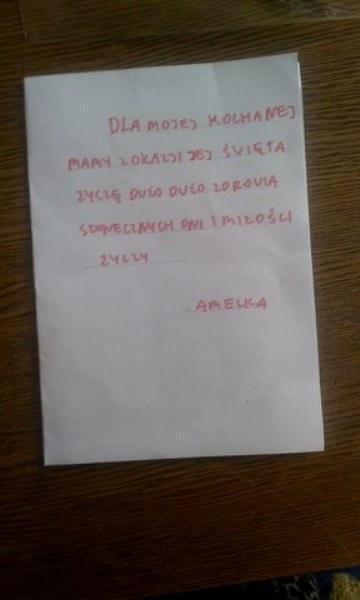 DLA MOJEJ KOCHANEJ
MAMY Z OKAZJI JEJ ŚWIĘTA
ŻYCZĘ DUŻO DUŻO ZDROWIA
SŁONECZNYCH DNI I MIŁOŚCI
ŻYCZY
AMELKA